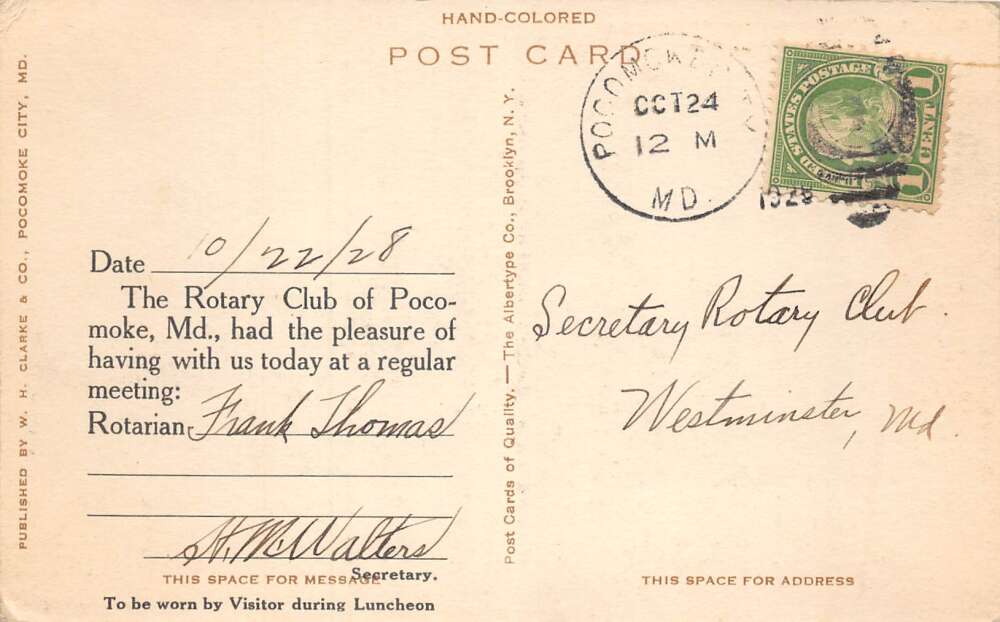 HAND-COLORED
POST CARD
PUBLISHED BY W. H. CLARKE & CO., POCOMOKE CITY, MD.
Date 10/22/28
The Rotary Club of Poco-
moke, Md., had the pleasure of
having with us today at a regular
meeting:
Rotarian Frank Thomas
H. M. Walters
Secretary.
THIS SPACE FOR MESSAGE
To be worn by Visitor during Luncheon
Post Cards of Quality. — The Albertype Co., Brooklyn, N. Y.
POCOMOKE CITY
OCT 24
12 M
MD.
1928
UNITED STATES POSTAGE
1 1
Secretary Rotary Club.
Westminster, Md.
THIS SPACE FOR ADDRESS